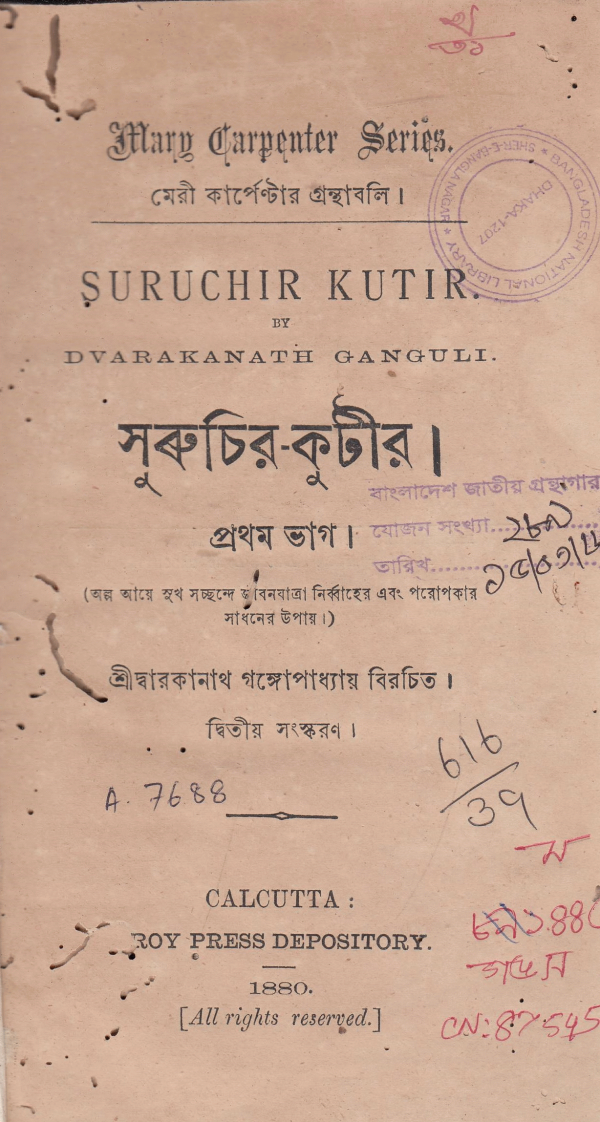 খ
৩১
Mary Carpenter Series.
মেরী কার্পেণ্টার গ্রন্থাবলি।
BANGLADESH NATIONAL LIBRARY * SHER-E-BANGLA NAGAR *
DHAKA-1207
SURUCHIR KUTIR.
BY
DVARAKANATH GANGULI.
সুরুচির-কুটীর।
বাংলাদেশ জাতীয় গ্রন্থাগার
প্রথম ভাগ।
যোজন সংখ্যা
তারিখ
(অল্প আয়ে সুখ সচ্ছন্দে জীবনযাত্রা নির্ব্বাহের এবং পরোপকার
সাধনের উপায়।)
শ্রীদ্বারকানাথ গঙ্গোপাধ্যায় বিরচিত।
দ্বিতীয় সংস্করণ।
616
39
A. 7688
ন
CALCUTTA :
ROY PRESS DEPOSITORY.
1880.
[All rights reserved.]
CN: 87545